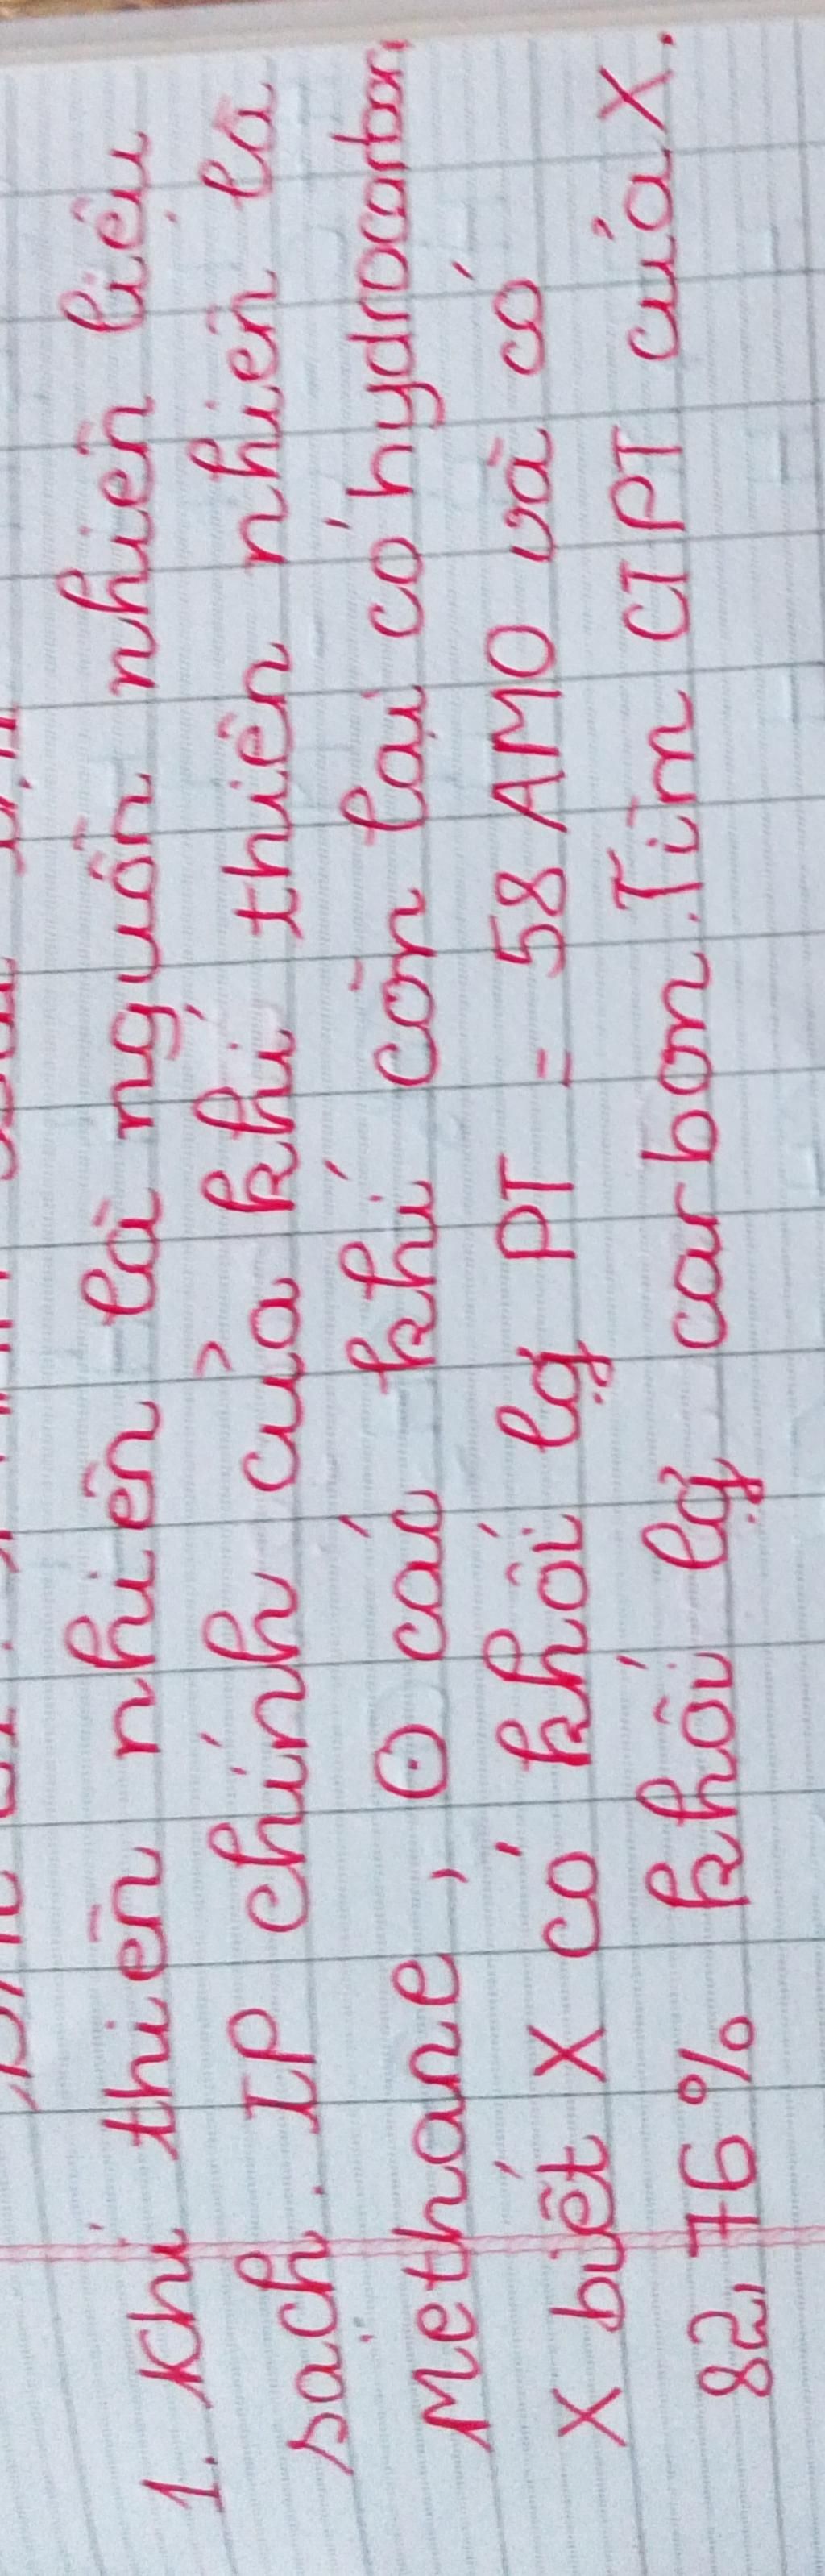 1. Khí thiên nhiên là nguồn nhiên liệu
sạch. TP chính của khí thiên nhiên là
Methane, ⊙ các khí còn lại có hydrocarbon
X biết X có khối lg PT = 58 AMO và có
82,76% khối lg carbon. Tìm CTPT của X.